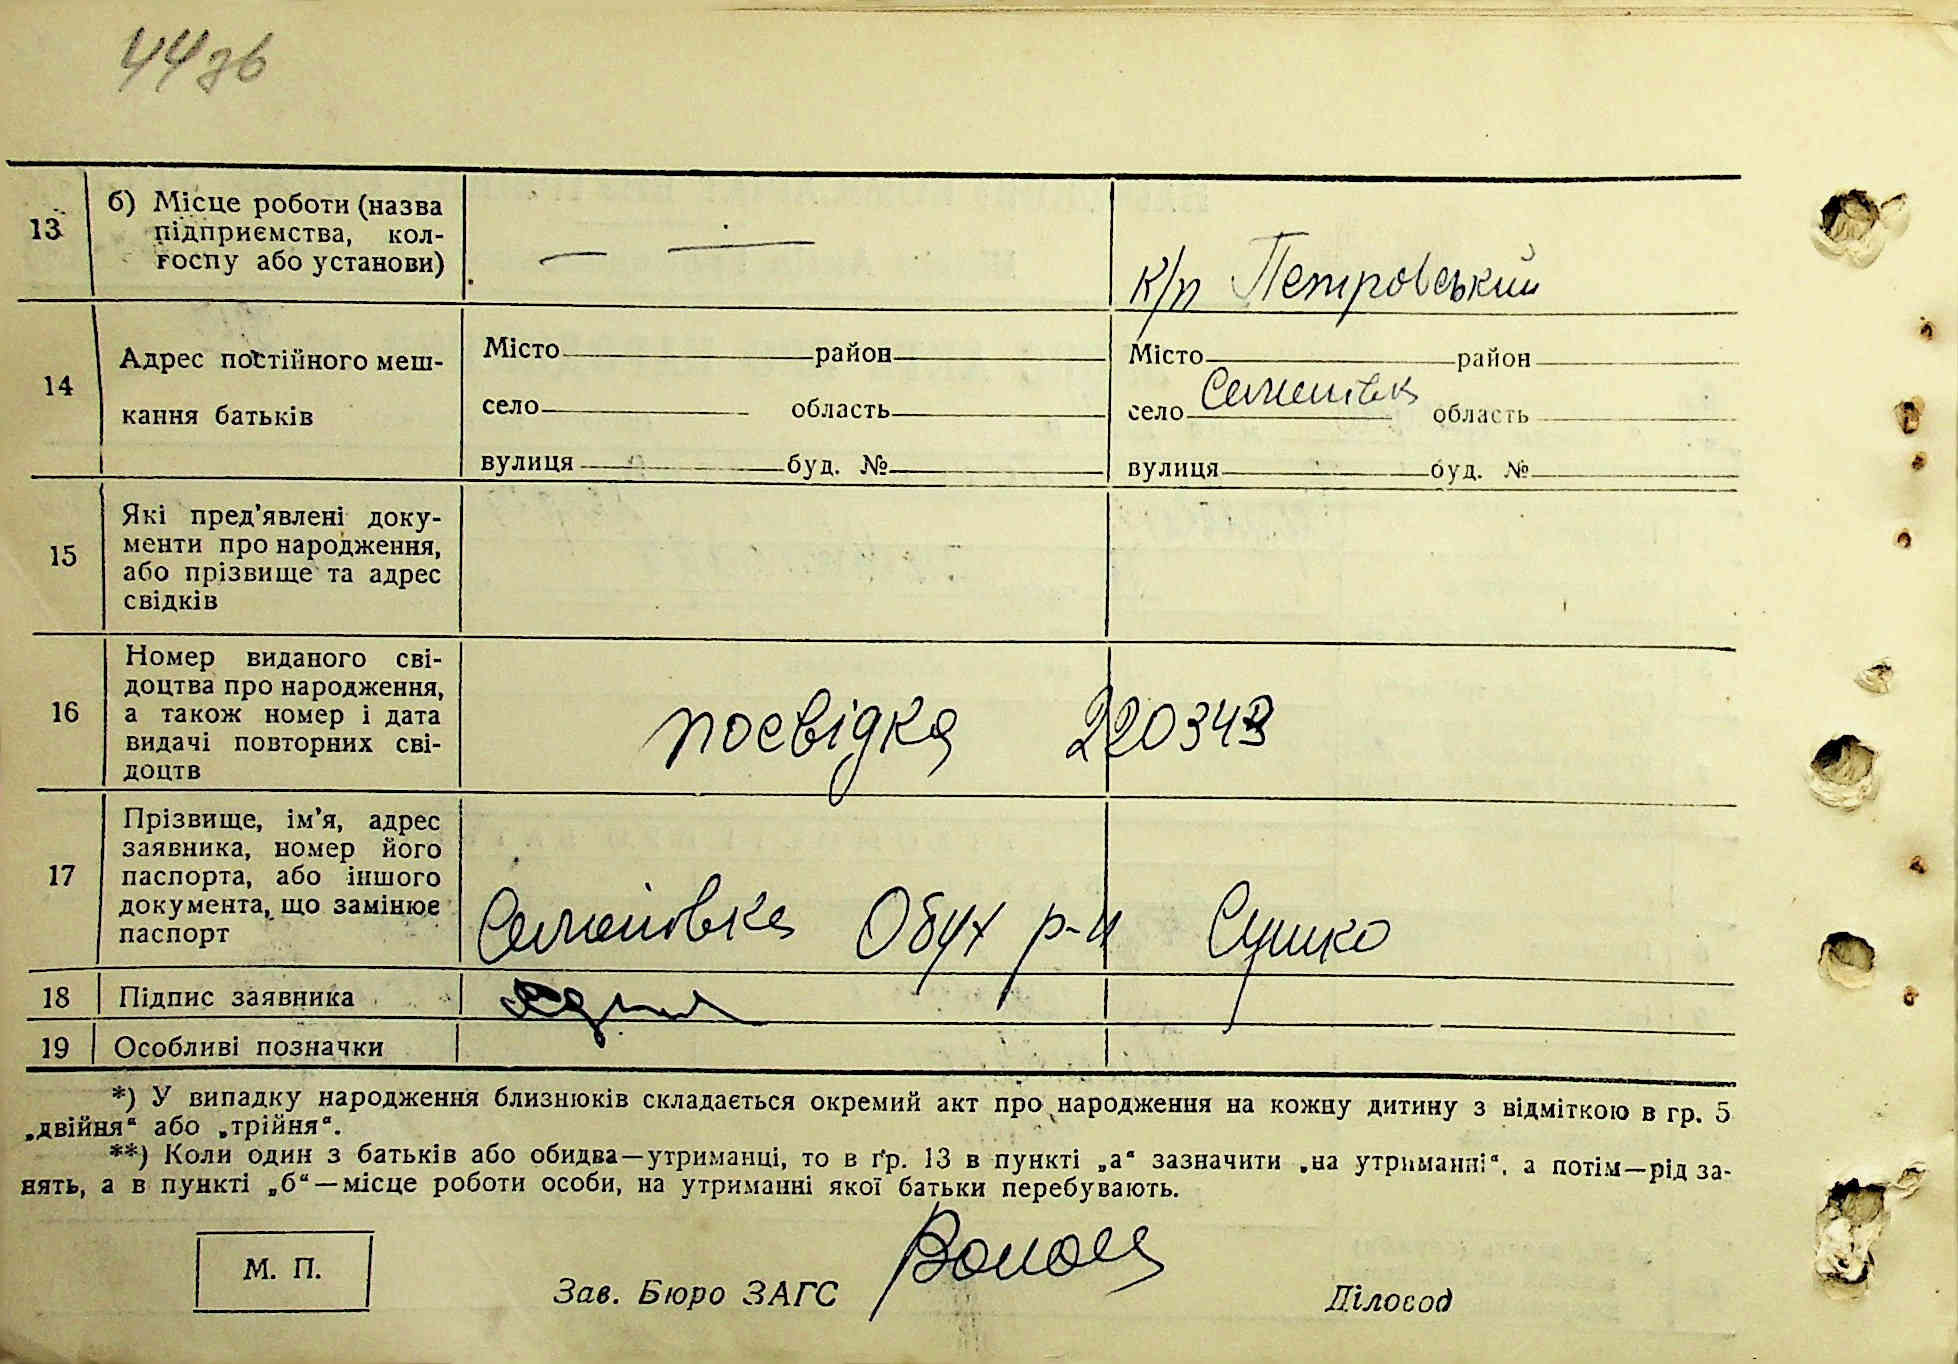 44зв
13 б) Місце роботи (назва
підприємства, кол-
госпу або установи) — — к/п Петровський
14 Адрес постійного меш-
кання батьків
Місто район Місто район
село область село Семенівка область
вулиця буд. № вулиця буд. №
15 Які пред'явлені доку-
менти про народження,
або прізвище та адрес
свідків
16 Номер виданого сві-
доцтва про народження,
а також номер і дата
видачі повторних сві-
доцтв
посвідка 220343
17 Прізвище, ім'я, адрес
заявника, номер його
паспорта, або іншого
документа, що замінює
паспорт
Семенівка Обух р-н Сушко
18 Підпис заявника
19 Особливі позначки
*) У випадку народження близнюків складається окремий акт про народження на кожну дитину з відміткою в гр. 5
„двійня“ або „трійня“.
**) Коли один з батьків або обидва—утриманці, то в гр. 13 в пункті „а“ зазначити „на утриманні“, а потім—рід за-
нять, а в пункті „б“—місце роботи особи, на утриманні якої батьки перебувають.
М. П.
Зав. Бюро ЗАГС
Діловод